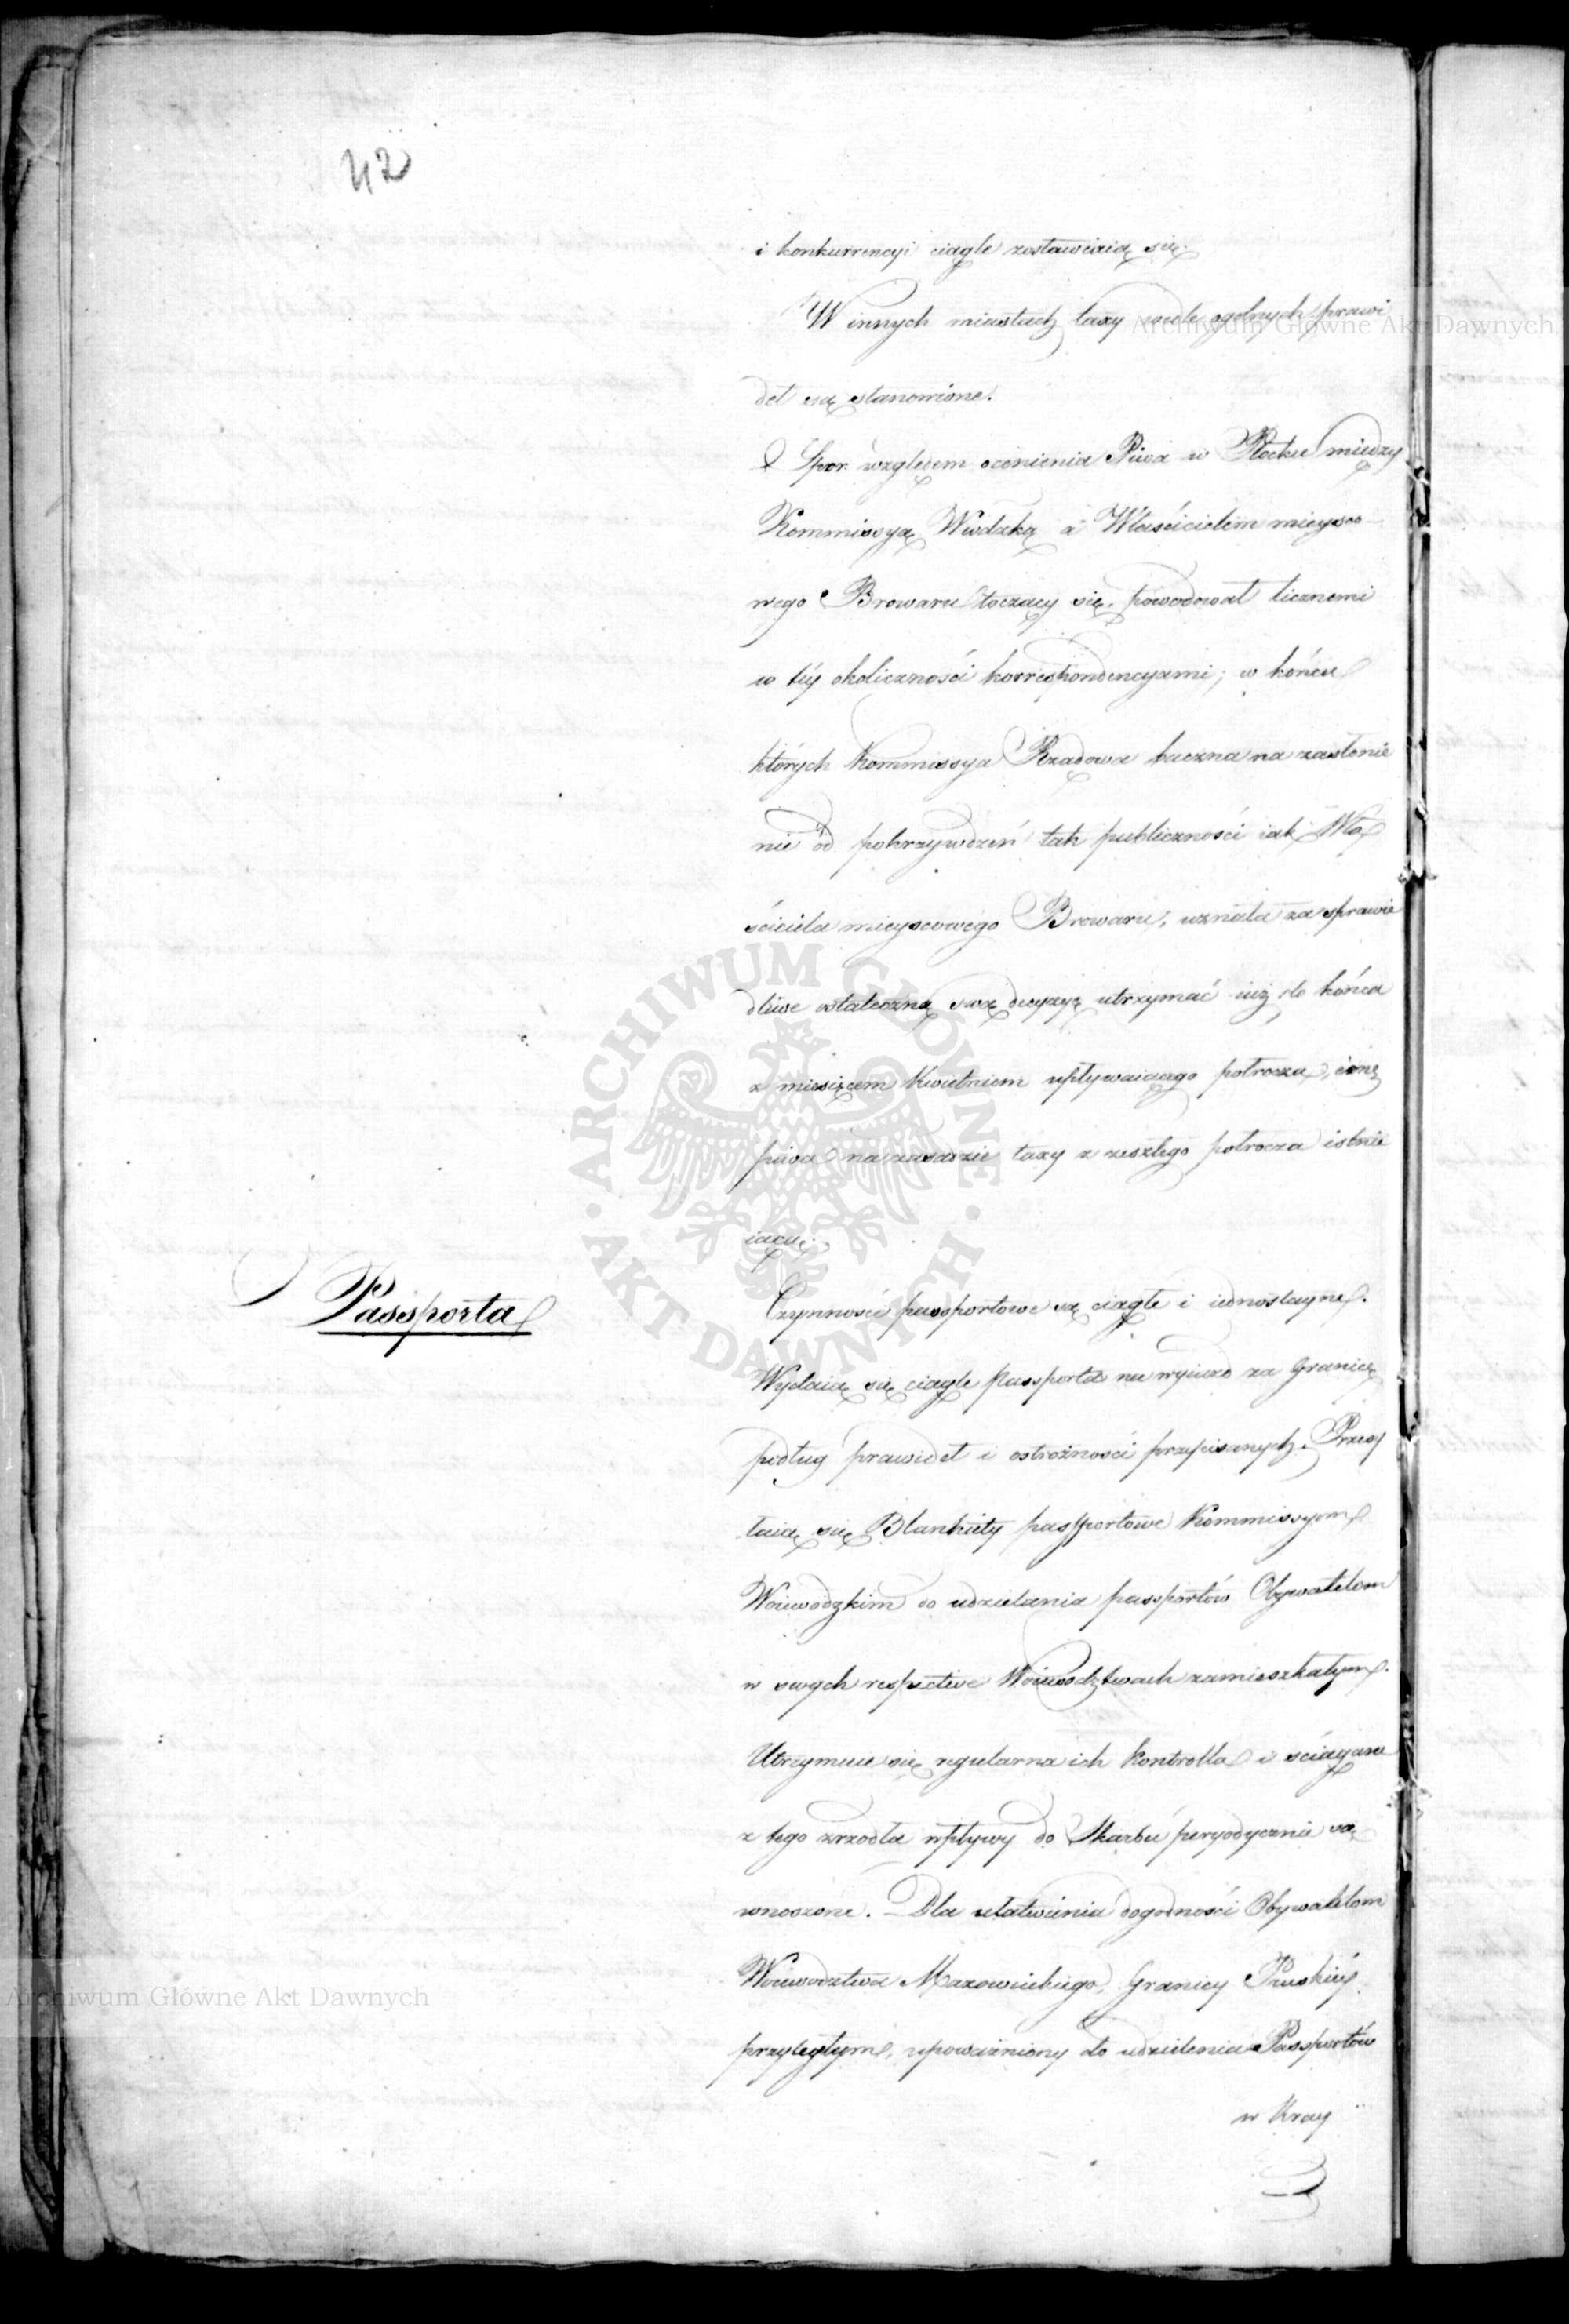 42
i konkurrencyi ciągle zostawiaią się.
W innych miastach taxy wedle ogolnych prawi
deł są stanowione.
Spor względem ocenienia Piwa w Płocku między
Kommissyą Wwdzką a Właścicielem mieysco
wego Browaru toczący się, powodował licznemi
w téy okoliczności korrespondencyami; w końcu
których Kommissya Rządowa baczna na zasłonie
nie od pokrzywdzeń tak publiczności iak Wła
ściciela mieyscowego Browaru, uznała za sprawie
dliwe ostateczną swą decyzyą utrzymać iuż do końca
z miesięcem Kwietniem upływaiącego połrocza, cenę
piwa na zasadzie taxy z zeszłego połrocza istnie
iącą.
Passporta
Czynności passportowe są ciągłe i iednostayne.
Wydaią się ciągle Passporta na wyiazd za Granicę
podług prawideł i ostrożności przepisanych. Przesy
łaią się Blankiety passportowe Kommissyom
Woiewodzkim do udzielania passportów Obywatelom
w swych respective Woiewodztwach zamieszkałym.
Utrzymuie się regularna ich Kontrolla i ściągane
z tego zrzodła wpływy do Skarbu peryodycznie są
wnoszone. Dla ułatwienia dogodności Obywatelom
Woiewodztwa Mazowieckiego, Granicy Pruskiéy
przyległym, upoważniony do udzielenia Passportów
w Kray
Archiwum Główne Akt Dawnych
ARCHIWUM GŁÓWNE AKT DAWNYCH
Archiwum Główne Akt Dawnych